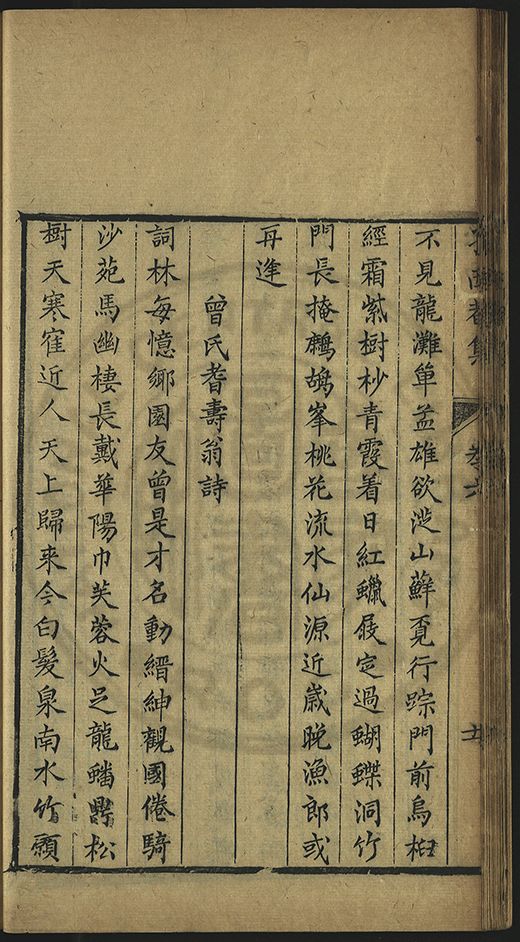 不見龍灘單孟雄欲渉山蘚覓行踪門前烏桕
經霜紫樹杪青霞着日紅蠟屐定過蝴蝶洞竹
門長掩鷓鴣峯桃花流水仙源近歲晚漁郎或
再逢
曾氏耆壽翁詩
詞林每憶鄉園友曾是才名動縉紳觀國倦騎
沙苑馬幽棲長戴華陽巾芙蓉火足龍蟠鼎松
樹天寒寉近人天上歸来今白髮泉南水竹願